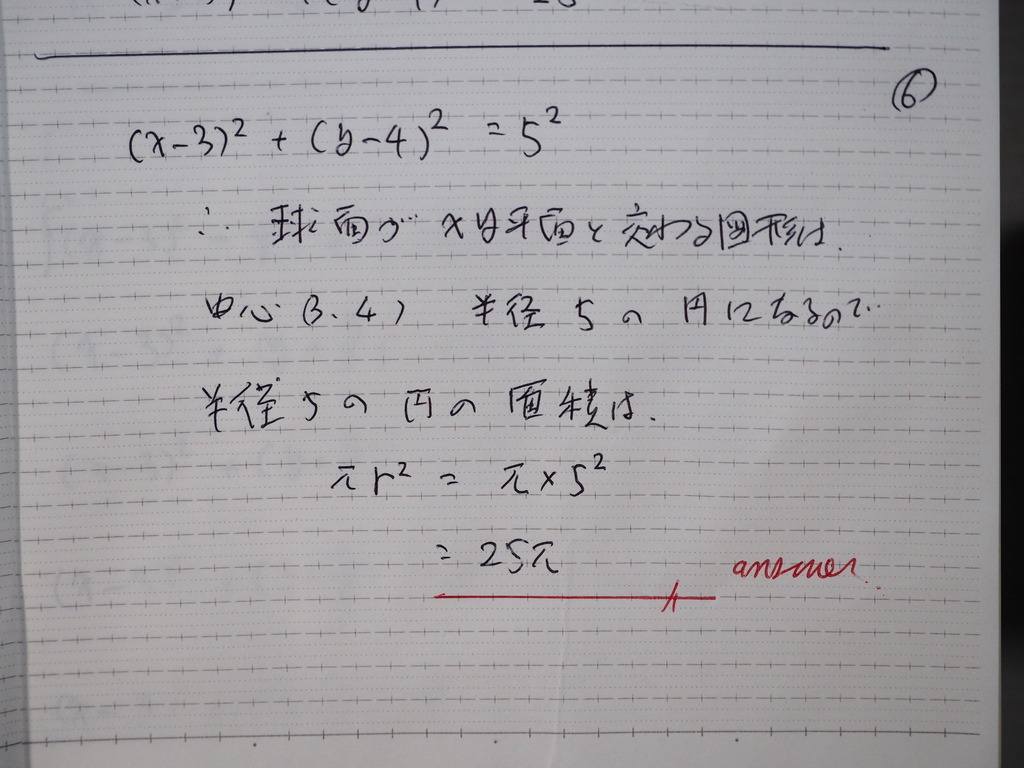 ⑥
(x-3)² + (y-4)² = 5²
∴ 球面が xy平面と交わる図形は、
中心 (3、4) 半径 5 の 円になるので…
半径 5 の 円の 面積は、
πr² = π×5²
= 25π
answer